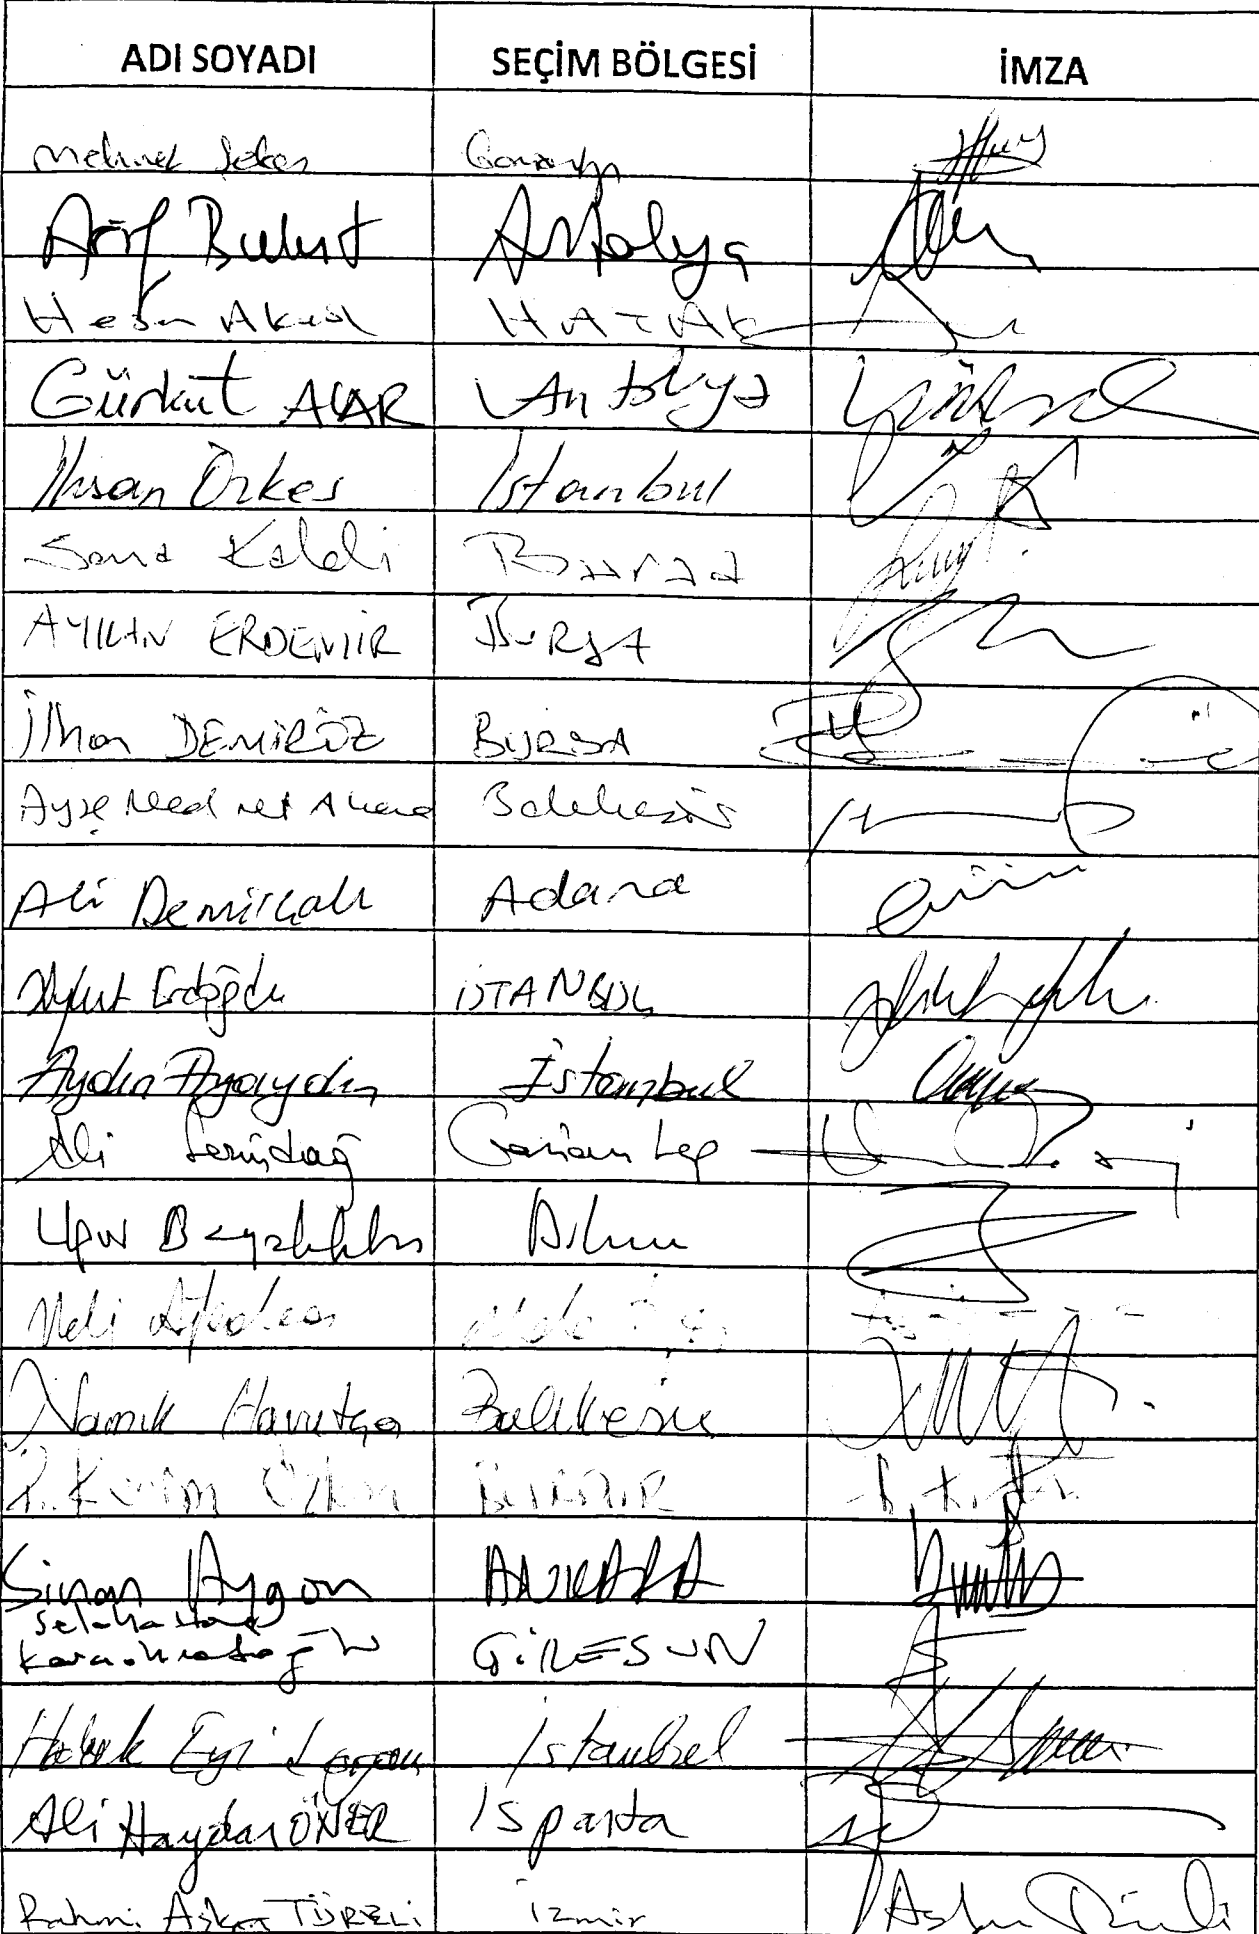 ADI SOYADI SEÇİM BÖLGESİ İMZA
Mehmet Şeker Gaziantep
Arif Bulut Antalya
Hasan Akgöl HATAY
Gürkut ACAR Antalya
İhsan Özkes İstanbul
Sena Kaleli Bursa
AYKAN ERDEMİR BURSA
İlhan DEMİRÖZ BURSA
Ayşe Nedret Akova Balıkesir
Ali Demirçalı Adana
Aykut Erdoğdu İSTANBUL
Aydın Ayaydın İstanbul
Ali Serindağ Gaziantep
Uğur Bayraktutan
Veli Ağbaba
Namık Havutça Balıkesir
R. Kerim Özkan BURDUR
Sinan Aygün ANKARA
Selahattin
Karaahmetoğlu GİRESUN
Haluk Eyidoğan İstanbul
Ali Haydar ÖNER Isparta
Rahmi Aşkın TÜRELİ İzmir